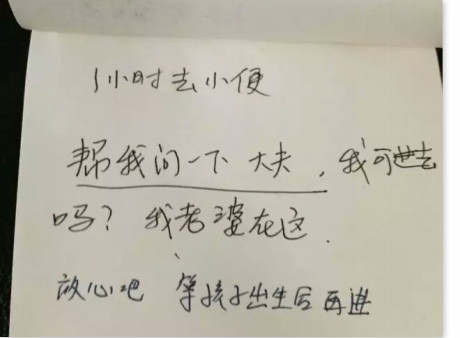 1小时去小便
帮我问一下 大夫，我可进去
吗？我老婆在这.
放心吧 等孩子出生后再进